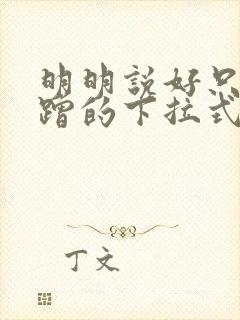 明明說好只
蹭的下拉式
丁文